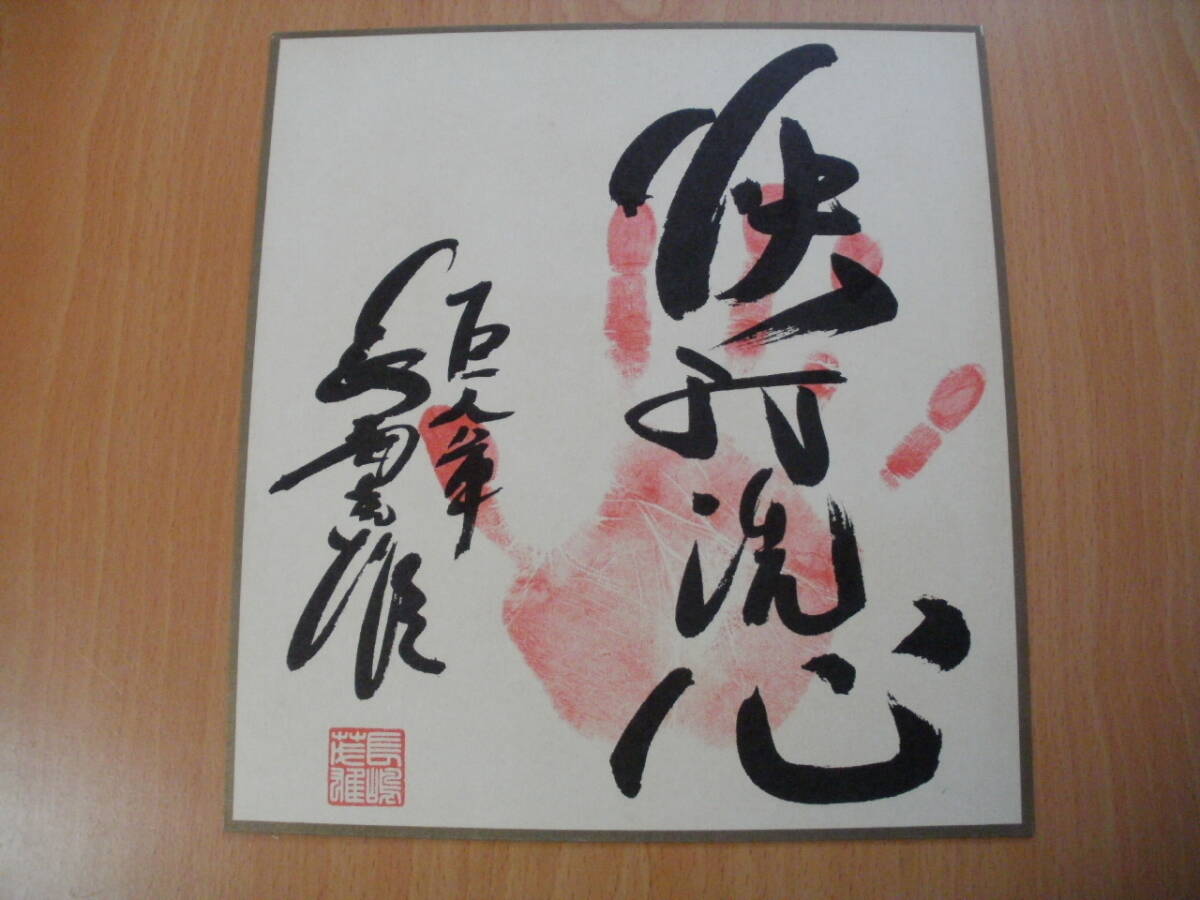 快打洗心
巨人軍
長嶋茂雄
長嶋茂雄